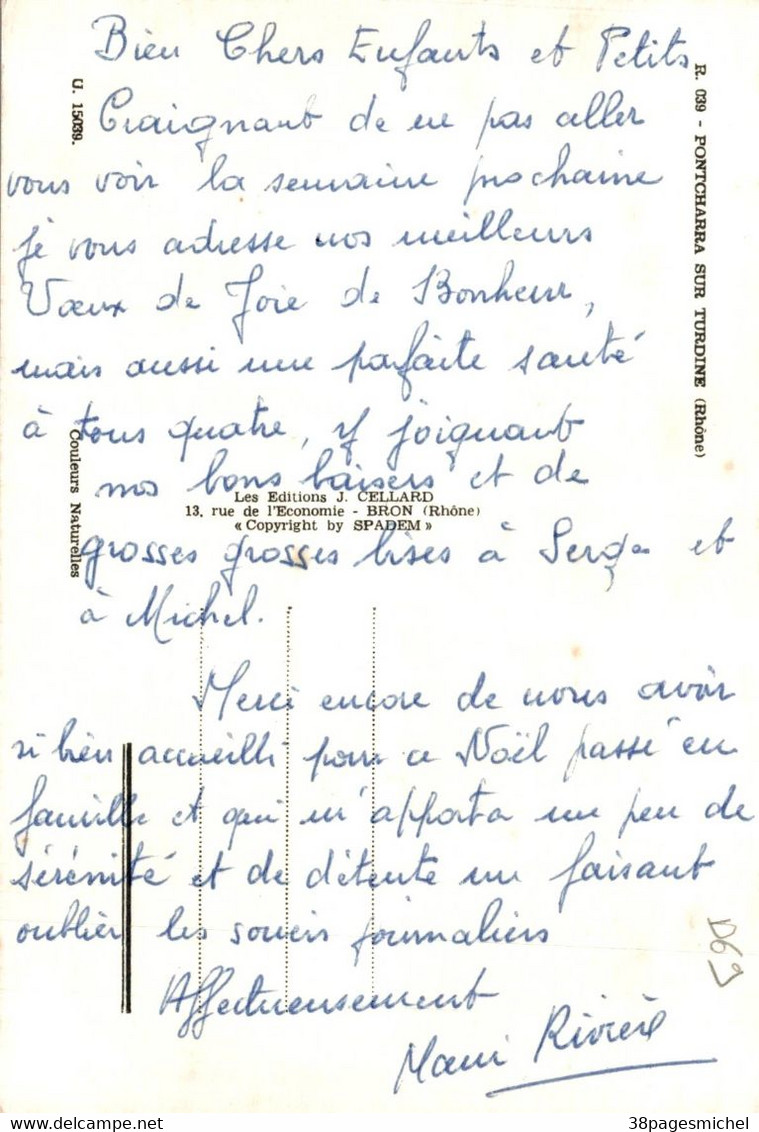 Bien Chers Enfants et Petits
Craignant de ne pas aller
vous voir la semaine prochaine
je vous adresse nos meilleurs
Vœux de Joie de Bonheur,
mais aussi une parfaite santé
à tous quatre, y joignant
nos bons baisers et de
grosses grosses bises à Serge et
à Michel.
Merci encore de nous avoir
si bien accueilli pour ce Noël passé en
famille et qui m'apporta un peu de
sérénité et de détente me faisant
oublier les soucis journaliers
Affectueusement
Rivière
R. 039 - PONTCHARRA SUR TURDINE (Rhône)
U. 15039.
Couleurs Naturelles
Les Editions J. CELLARD
13, rue de l'Economie - BRON (Rhône)
« Copyright by SPADEM »
D69
38pagesmichel